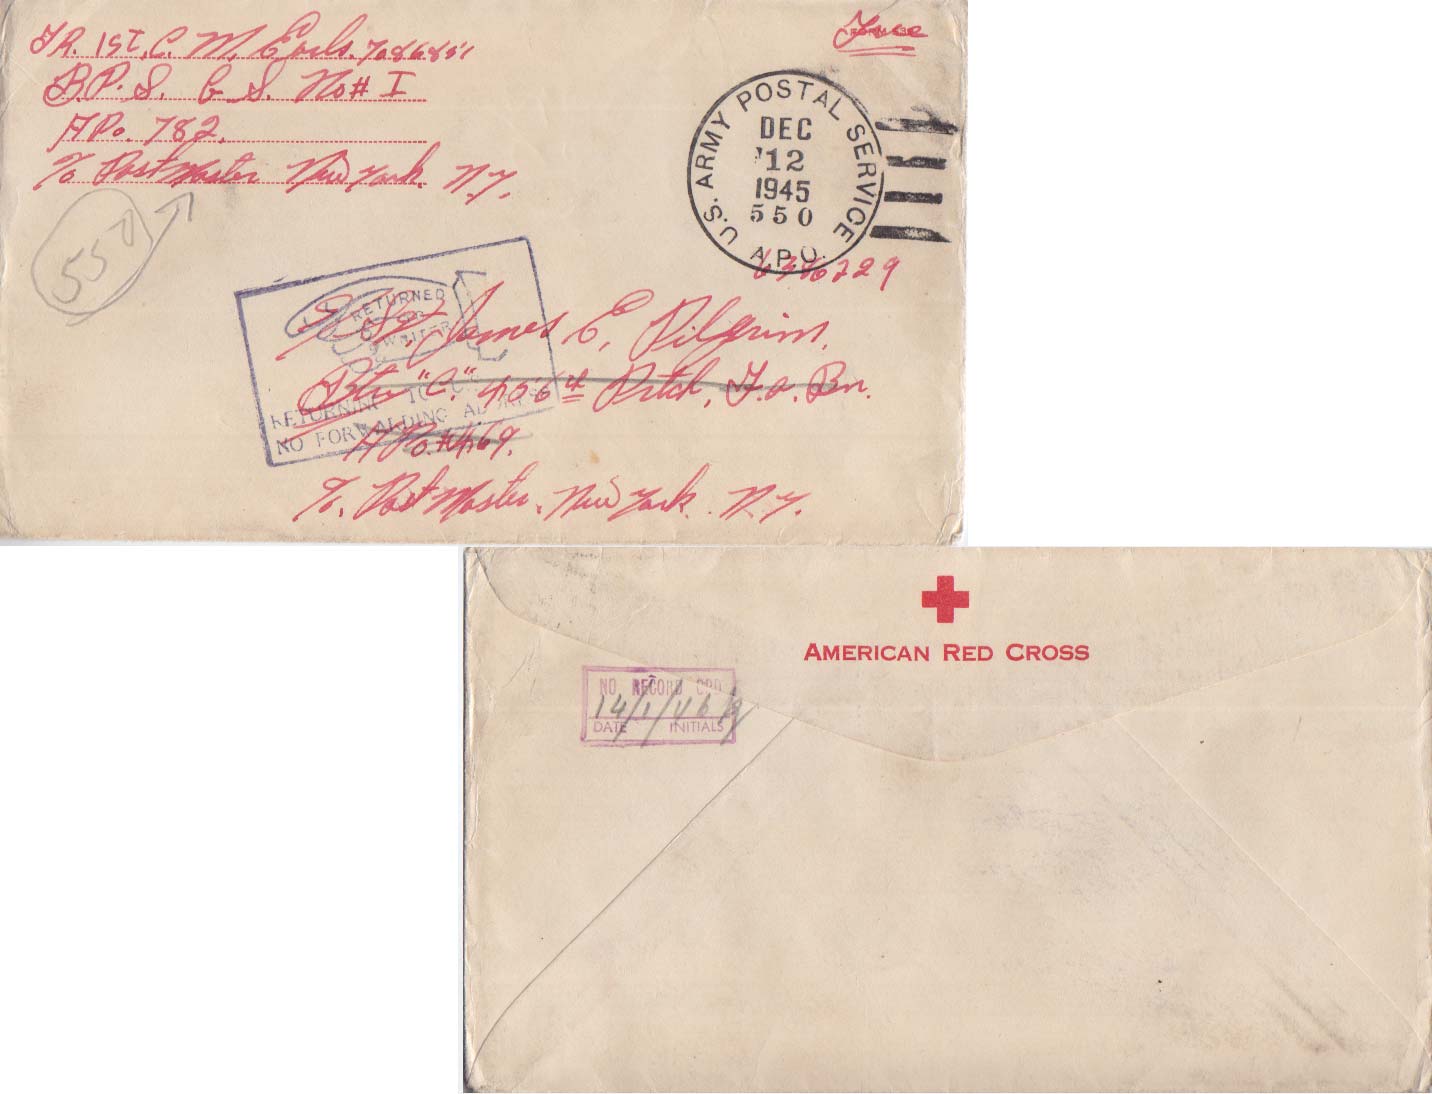 1ST. C. M. Earls. 7086851
B.P.S. G S. No# I
APo. 782.
% Post Master New York. N.Y.
Free
U.S. ARMY POSTAL SERVICE
DEC
12
1945
550
A.P.O.
6386229
550
RETURNED
TO
WRITER
James E. Pilgrim.
Btry "C." 456th Prtch. F.a. Bn.
APo.#469.
%. Post Master. New York. N.Y.
RETURNING TO
NO FORWARDING ADDRESS
AMERICAN RED CROSS
NO RECORD CPD
14/1/46
DATE INITIALS